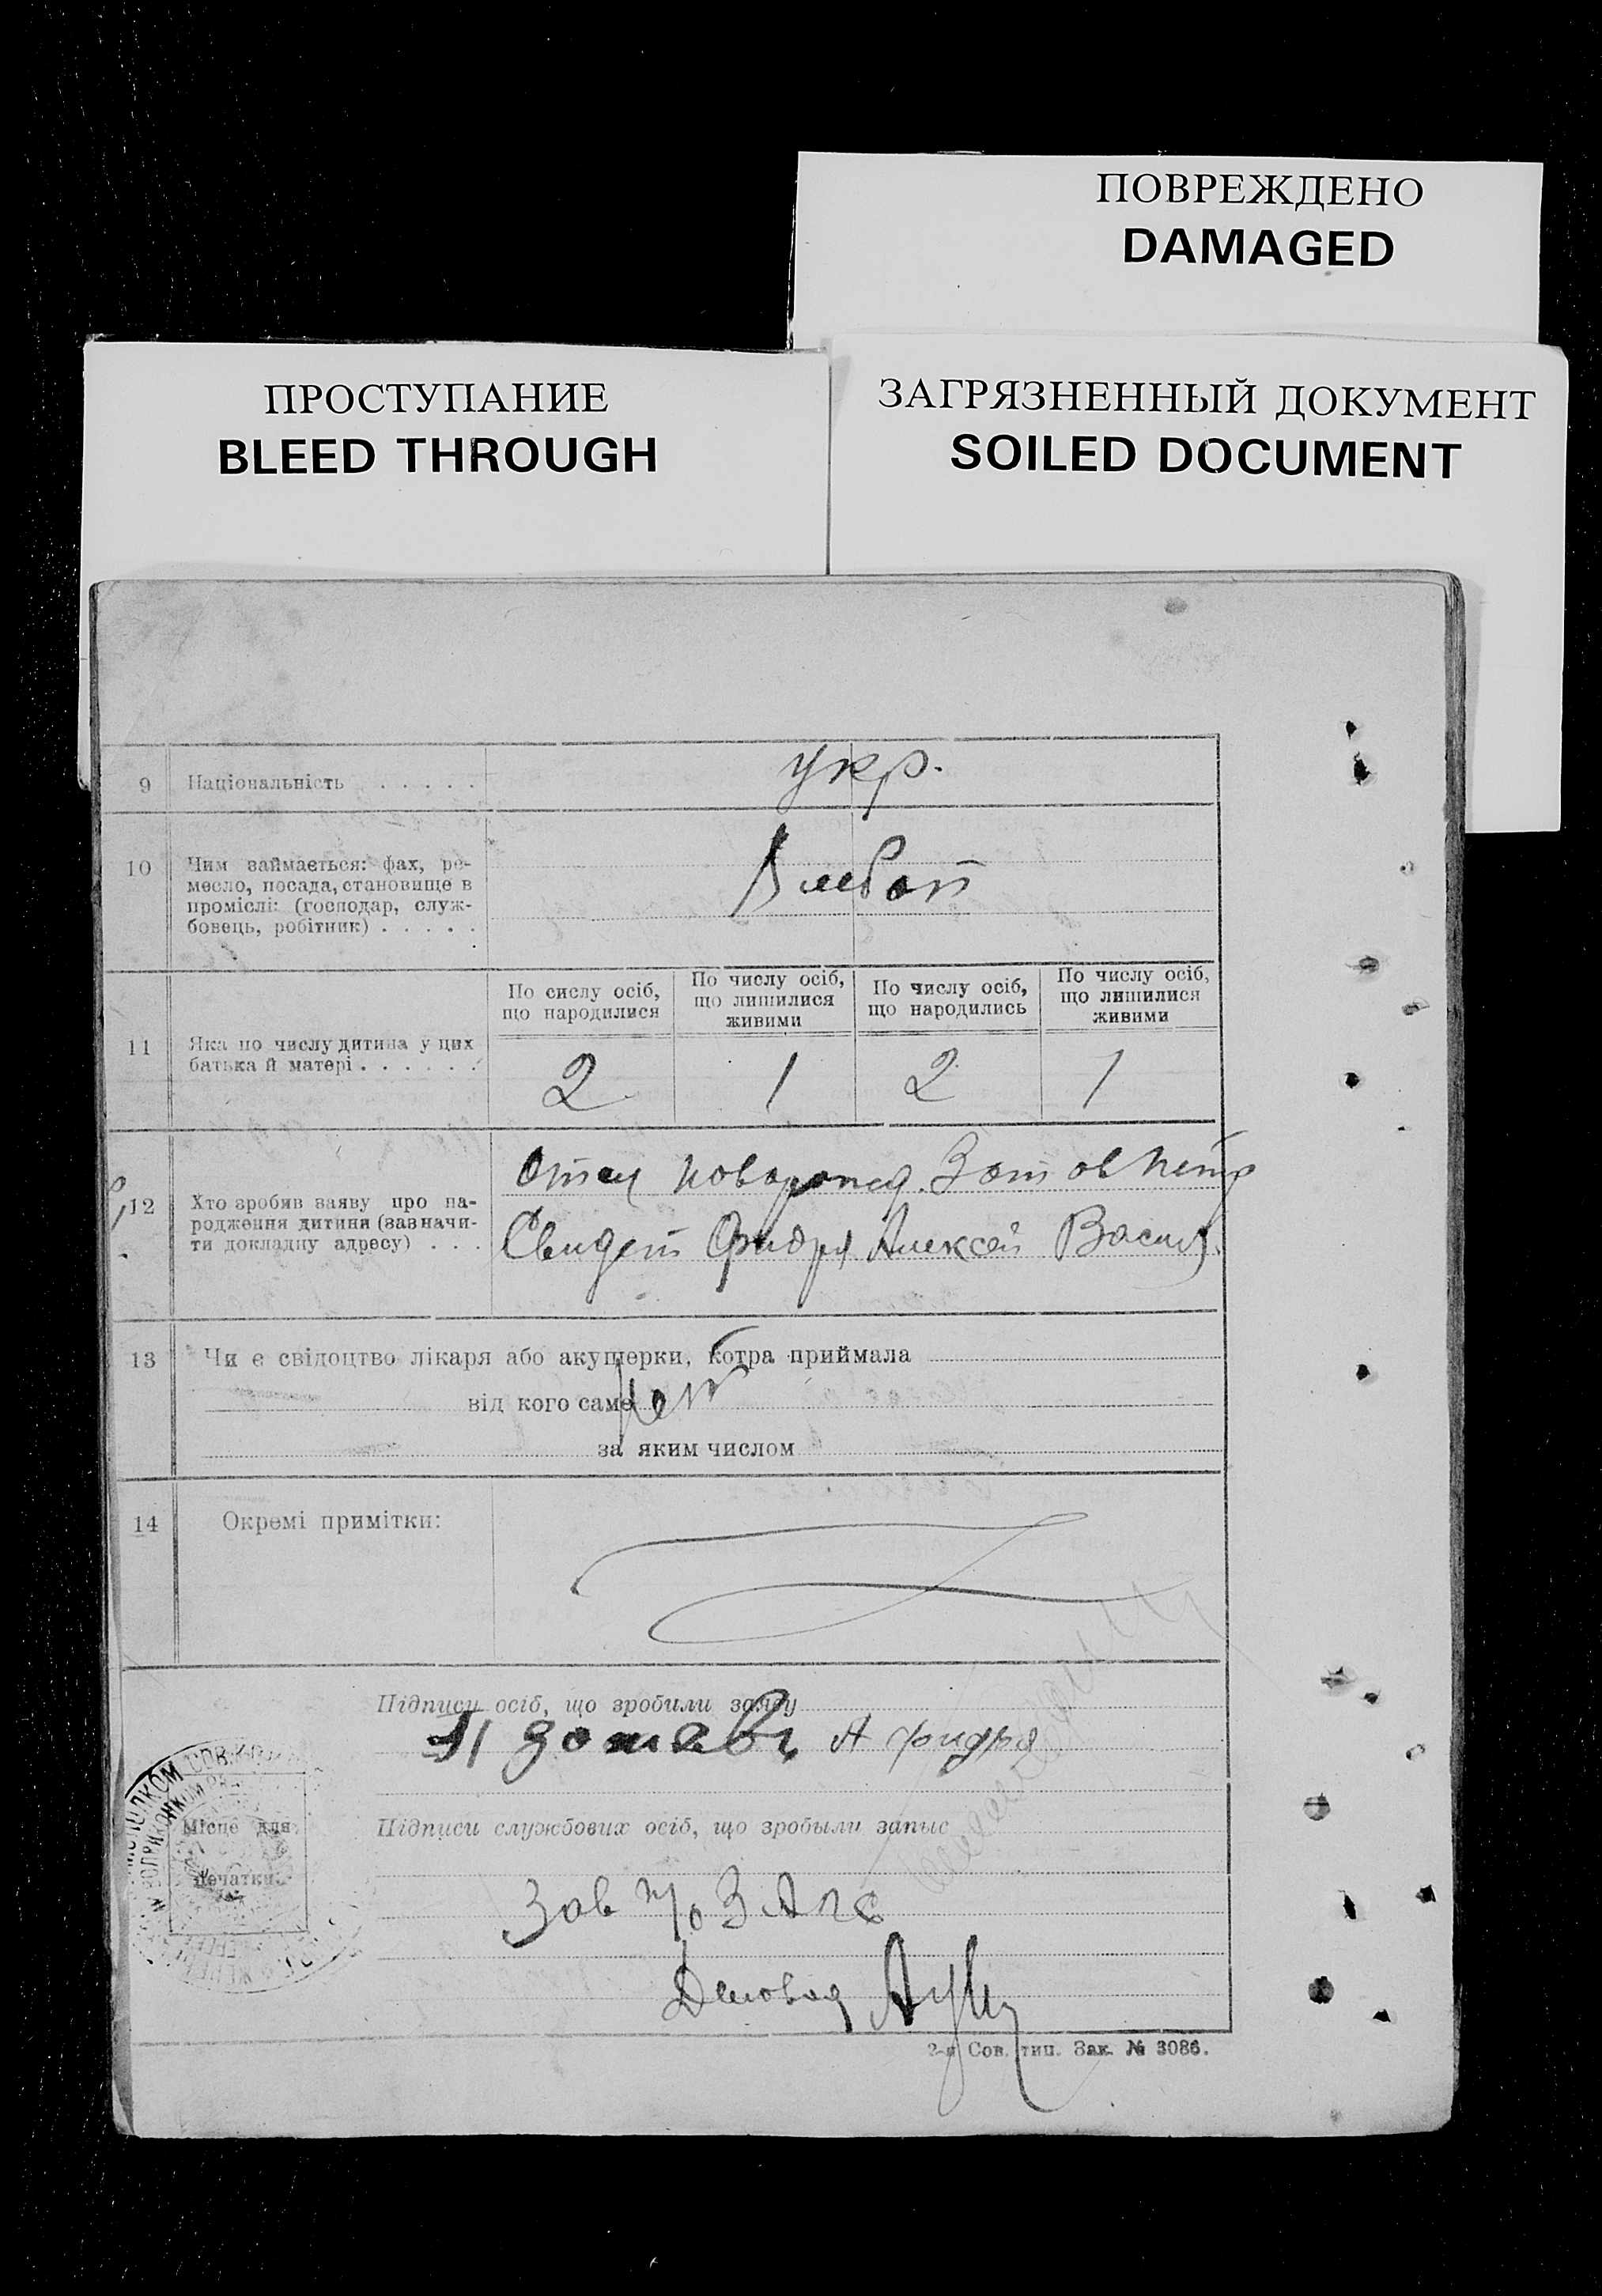 ПОВРЕЖДЕНО
DAMAGED
ПРОСТУПАНИЕ
BLEED THROUGH
ЗАГРЯЗНЕННЫЙ ДОКУМЕНТ
SOILED DOCUMENT
9 Національність . . . . . укр.
10 Чим займається: фах, ре-
месло, посада, становище в
проміслі: (господар, служ-
бовець, робітник) . . . . .
По сислу осіб,
що народилися
По числу осіб,
що лишилися
живими
По числу осіб,
що народились
По числу осіб,
що лишилися
живими
11 Яка по числу дитина у цих
батька й матері . . . . . .
2 1 2 1
12 Хто зробив заяву про на-
родження дитини (зазначи-
ти докладну адресу) . . .
Отец
Свидет Фидря Алексей Васил
13 Чи є свідоцтво лікаря або акушерки, котра приймала
від кого саме нет
за яким числом
14 Окремі примітки:
Підписи осіб, що зробили заяву
А фидря
Місце для
печатки
Підписи службових осіб, що зробыли запыс
Зав п/о ЗАГС
Деловод
2-я Сов. тип. Зак. № 3086.